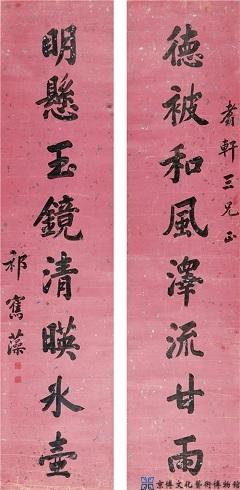 軒三兄正
德被和風澤流甘雨
明懸玉鏡清暎氷壺
祁寯藻
京博文化藝術博物館